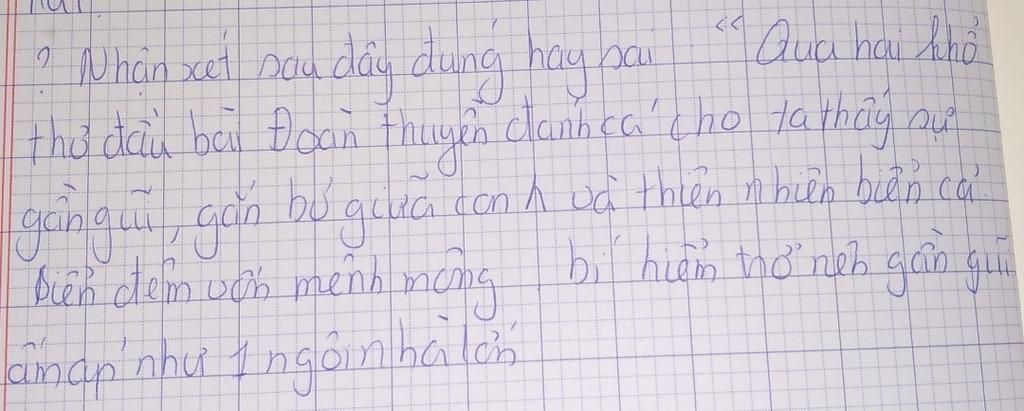 ? Nhận xét sau đây đúng hay sai " Qua hai khổ
thơ đầu bài Đoàn thuyền đánh cá cho ta thấy sự
gần gũi, gắn bó giữa con n và thiên nhiên biển cả.
Biển đêm vốn mênh mông bí hiểm trở nên gần gũi
ấm áp như 1 ngôi nhà lớn